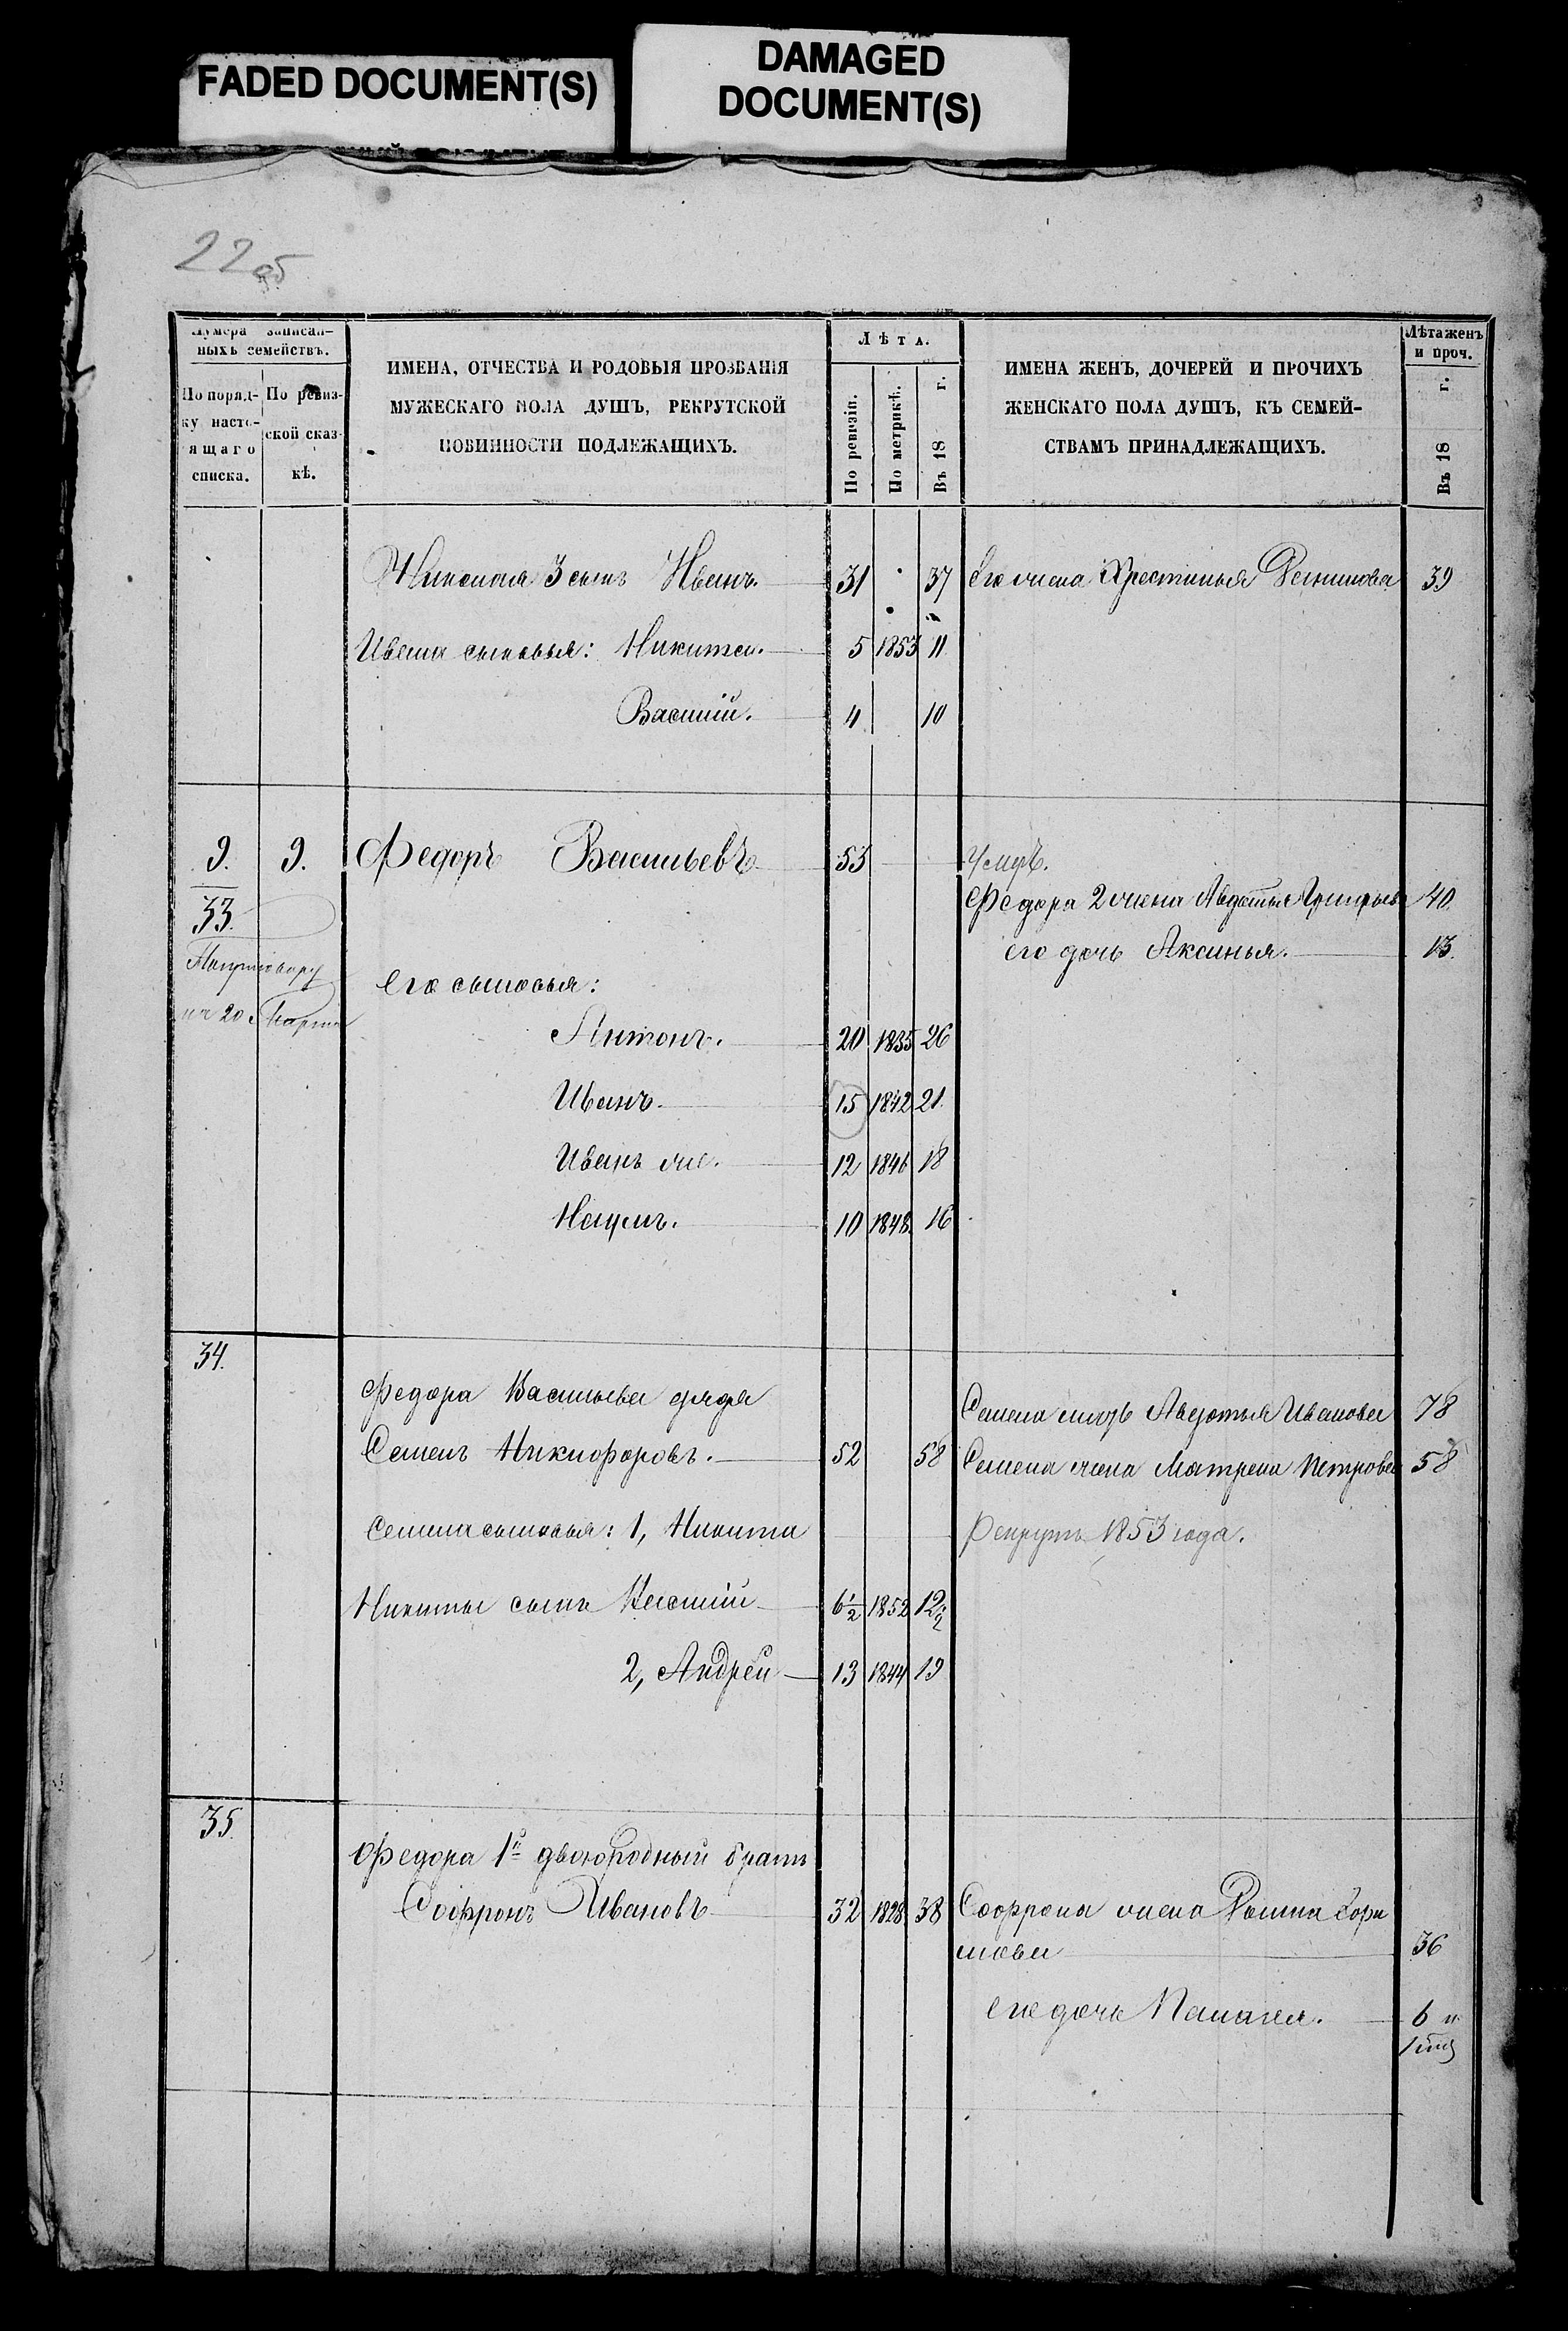 FADED DOCUMENT(S)
DAMAGED
DOCUMENT(S)
22 об
Нумера записан-
ныхъ семействъ.
По поряд-
ку насто-
ящаго
списка.
По ревиз-
ской сказ-
кѣ.
ИМЕНА, ОТЧЕСТВА И РОДОВЫЯ ПРОЗВАНІЯ
МУЖЕСКАГО ПОЛА ДУШЪ, РЕКРУТСКОЙ
ПОВИННОСТИ ПОДЛЕЖАЩИХЪ.
Лѣта.
По ревизіи.
По метрикѣ.
Въ 18 г.
ИМЕНА ЖЕНЪ, ДОЧЕРЕЙ И ПРОЧИХЪ
ЖЕНСКАГО ПОЛА ДУШЪ, КЪ СЕМЕЙ-
СТВАМЪ ПРИНАДЛЕЖАЩИХЪ.
Лѣта женъ
и проч.
Въ 18 г.
3 сынъ Иванъ. 31 37 Его жена Хрестинья 39
Ивана сыновья: Никита. 5 1853 11
Василій. 4 10
9. 9. Федоръ Васильевъ 53 Умеръ.
33. Федора 2 жена Авдотья Григорьева 40.
его дочь Аксинья. 13.
По приговору
на 20 Марта
Его сыновья:
Антонъ. 20 1835 26
Иванъ. 15 1842 21.
Иванъ же. 12 1846 18
Наумъ. 10 1848. 16
34.
Федора Васильева дядя
Семена мать Авдотья Иванова 78
Семенъ Никифоровъ. 52 58 Семена жена Матрена Петрова 58
Семена сыновья: 1, Никита Рекрутъ 1853 года.
Никиты сынъ Василій 6½ 1852 12½
2, Андрей 13 1844 19
35.
Федора 1й двоюродный братъ
Софронъ Ивановъ 32 1828 38 Софрона жена
36
его дочь 6 н